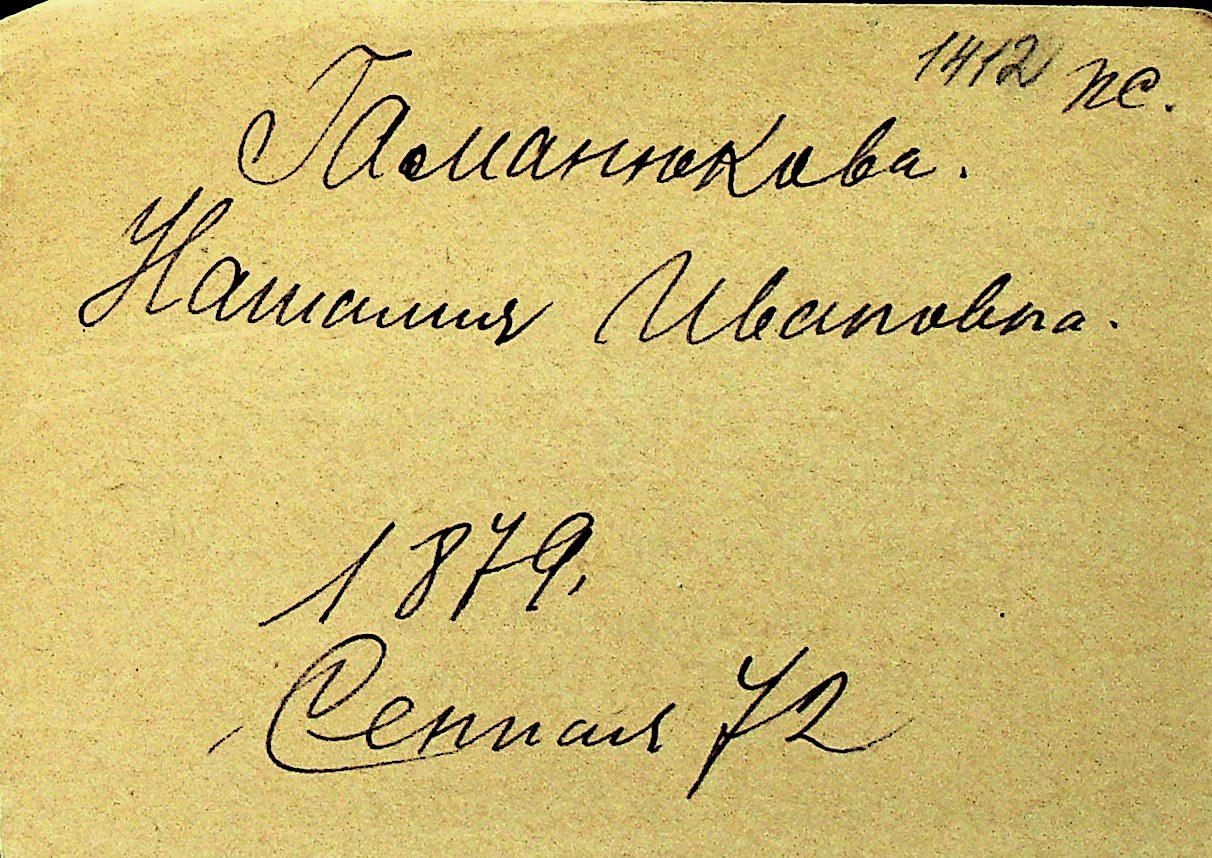 1412 пс.
Гаманюкова.
Наталия Ивановна.
1879.
Сенная 72